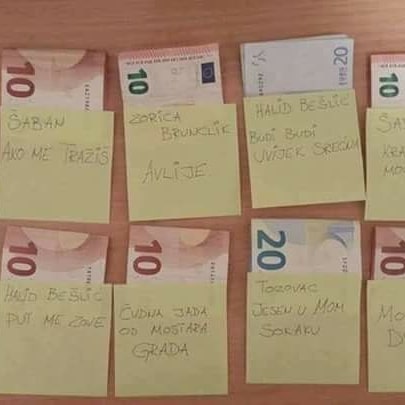 10
10
20
10
ŠABAN
AKO ME TRAŽIŠ
ZORICA
BRUNCLIK
AVLIJE
HALID BEŠLIĆ
BUDI BUDI
UVIJEK SREĆNA
ŠA
KRA
MO
10
10
20
10
HALID BEŠLIĆ
PUT ME ZOVE
ČUDNA JADA
OD MOSTARA
GRADA
TOZOVAC
JESEN U MOM
SOKAKU
MO